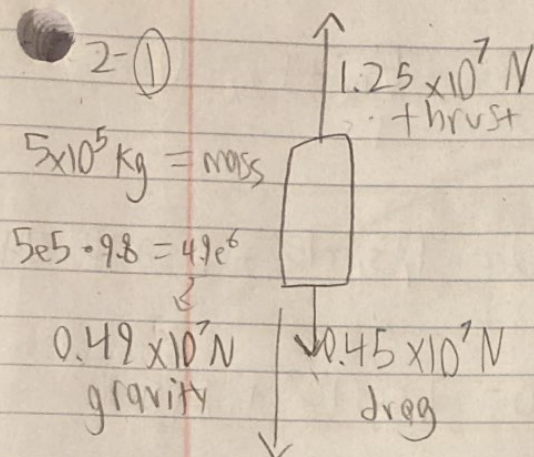 2-①
1.25 x10⁷ N
thrust
5x10⁵ Kg = mass
5e5 • 9.8 = 4.9e⁶
0.49 x10⁷ N
gravity
0.45 x10⁷ N
drag